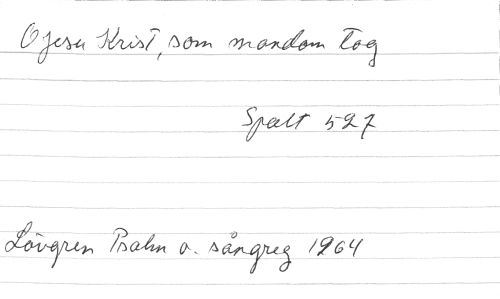 O Jesu Krist, som mandom tog
Spalt 527
Lövgren Psalm o. sångreg 1964